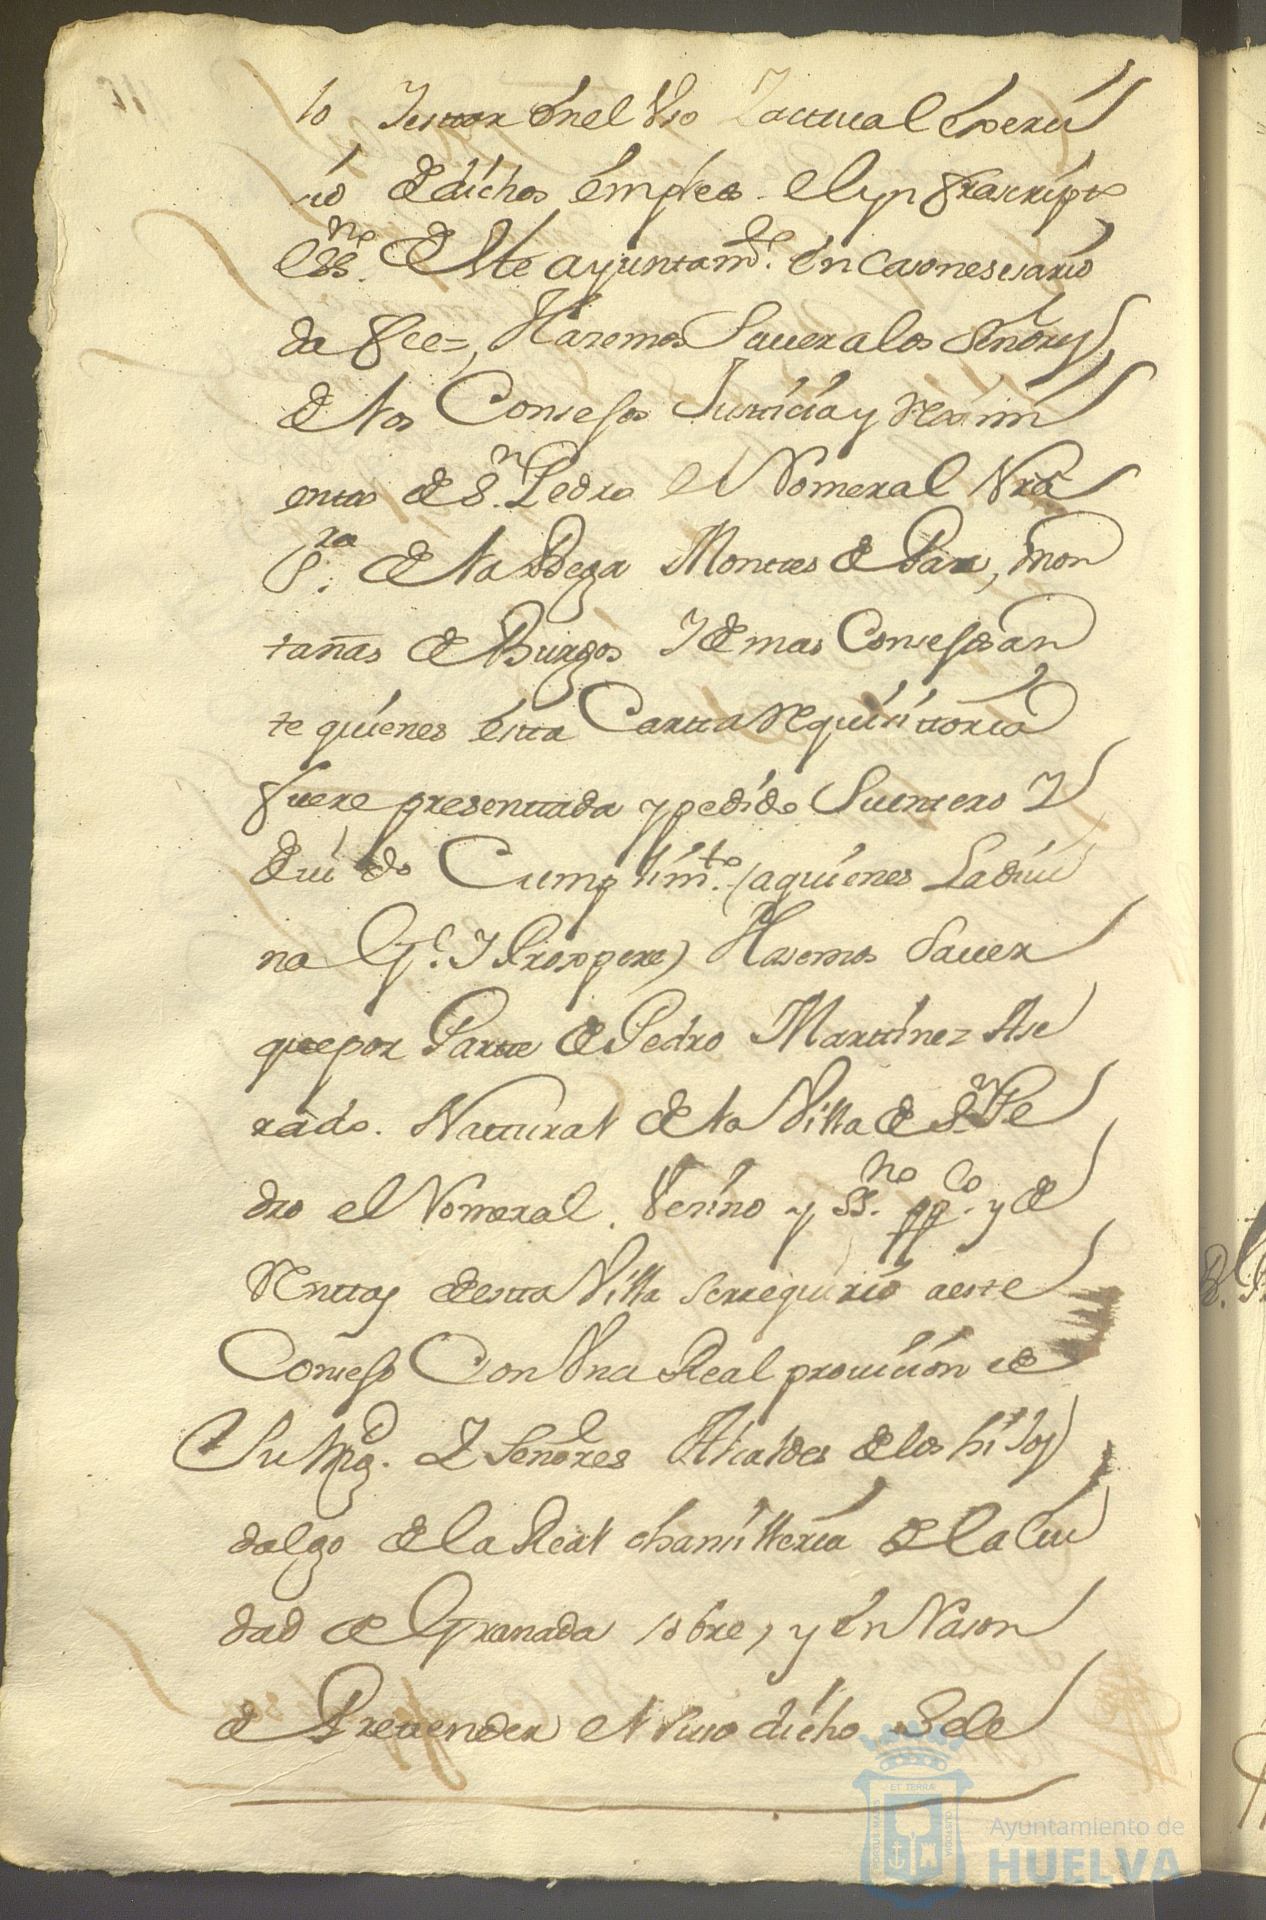 lo Jestar en el Vso Yactual Exerci
sio de dichos empleos. el ynfraescripto
ess.no de Este ayuntam.to en caso nesesario
da fee=, Hasemos Sauer a los señores
de los Consejos Justicia y Rexim
entos de S.n Pedro el Romeral Nra
S.ra de la Bega Montes de Pax, mon
tañas de Burgos Y demas Consejos an
te quienes esta Carta Requisitoria
fuere presentada y pedido Su entero Y
deuido Cumplim.to (a quienes La diui
na G.e Y Prospere) Hasemos Sauer
que por Parte de Pedro Martinez
rado. Natural de la Villa de S.n Pe
dro el Romeral. Vesino y SS.no pp.co y de
Rentas de esta Villa se rrequirio a este
Consejo Con Una Real prouision de
Su Mag.d Y Señores Alcaldes de los hijos
dalgo de la Real chansilleria de la Ciu
dad de Granada sobre, y en Rason
de Pretender el suso dicho Se le
ET TERRÆ
PORTUS MARIS
CUSTODIA
Ayuntamiento de
HUELVA